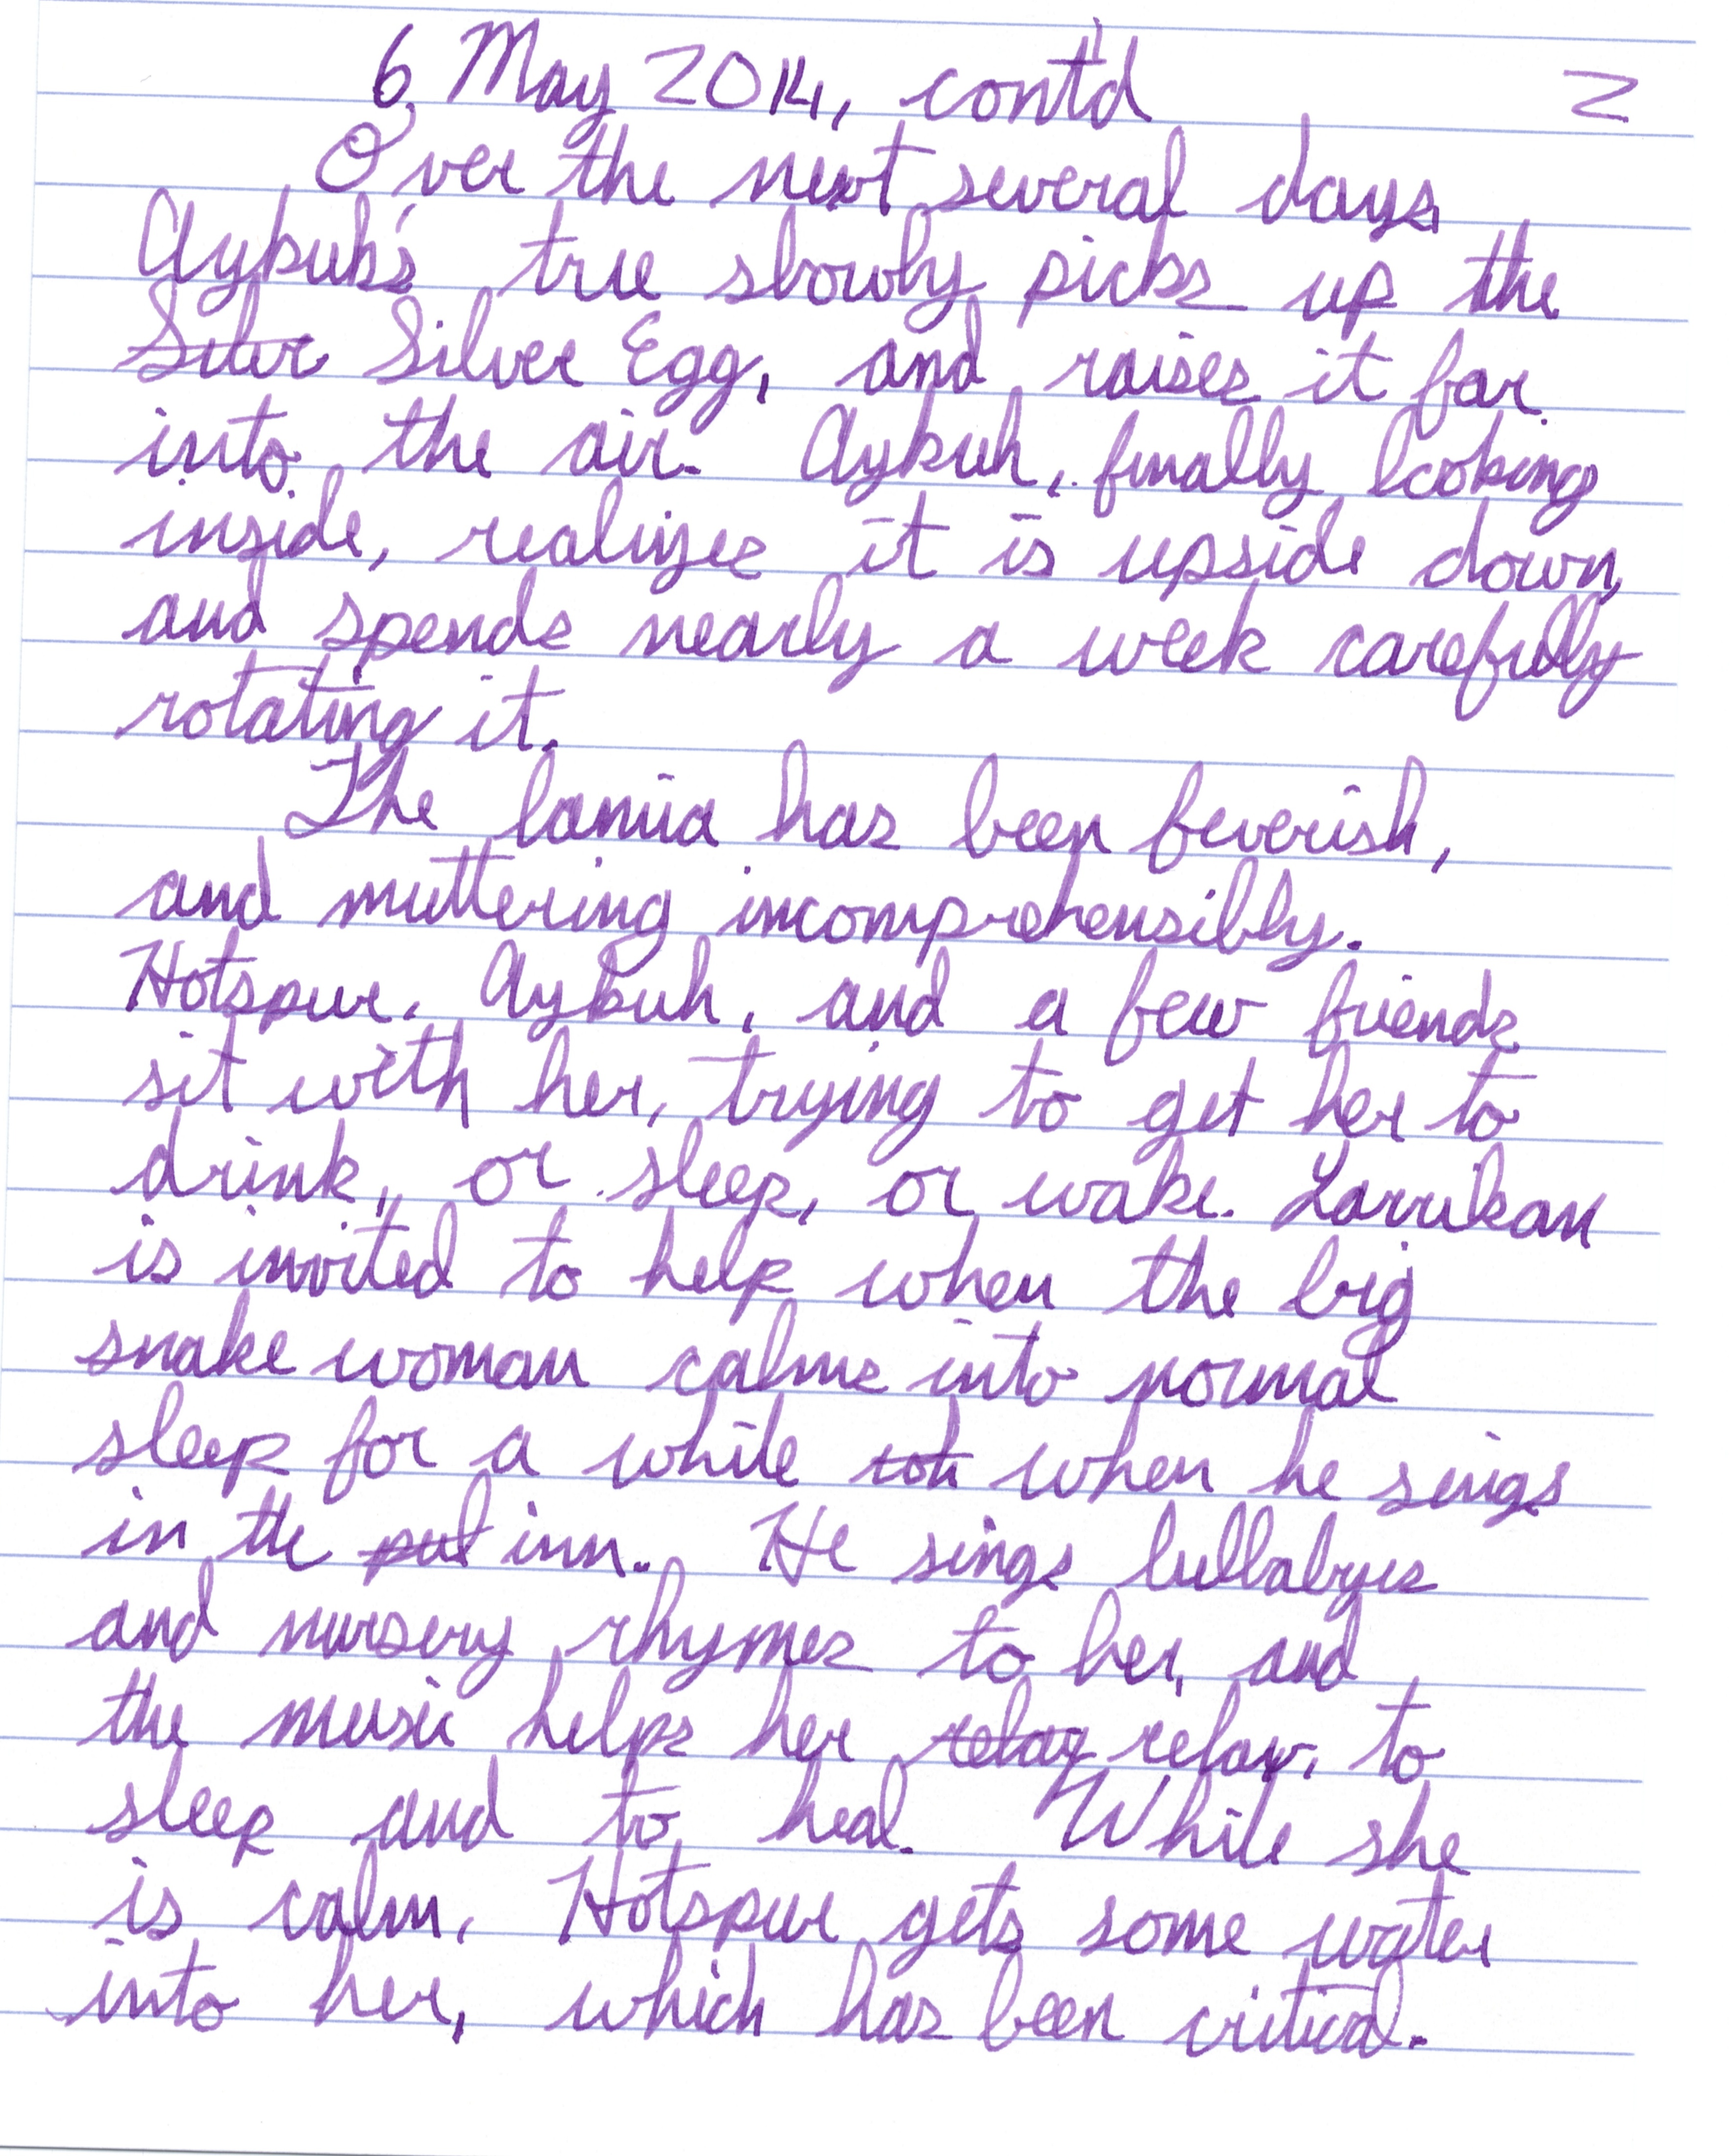 6 May 2014, cont'd 2
Over the next several days
Aykuh's tree slowly picks up the
Silver Silver Egg, and raises it far
into the air. Aykuh, finally looking
inside, realizes it is upside down,
and spends nearly a week carefully
rotating it.
The lamia has been feverish,
and muttering incomprehensibly.
Hotspur, Aykuh, and a few friends
sit with her, trying to get her to
drink, or sleep, or wake. Larrikan
is invited to help when the big
snake woman calms into normal
sleep for a while when he sings
in the inn. He sings lullabyes
and nursery rhymes to her, and
the music helps her relax relax, to
sleep and to heal. While she
is calm, Hotspur gets some water
into her, which has been critical.